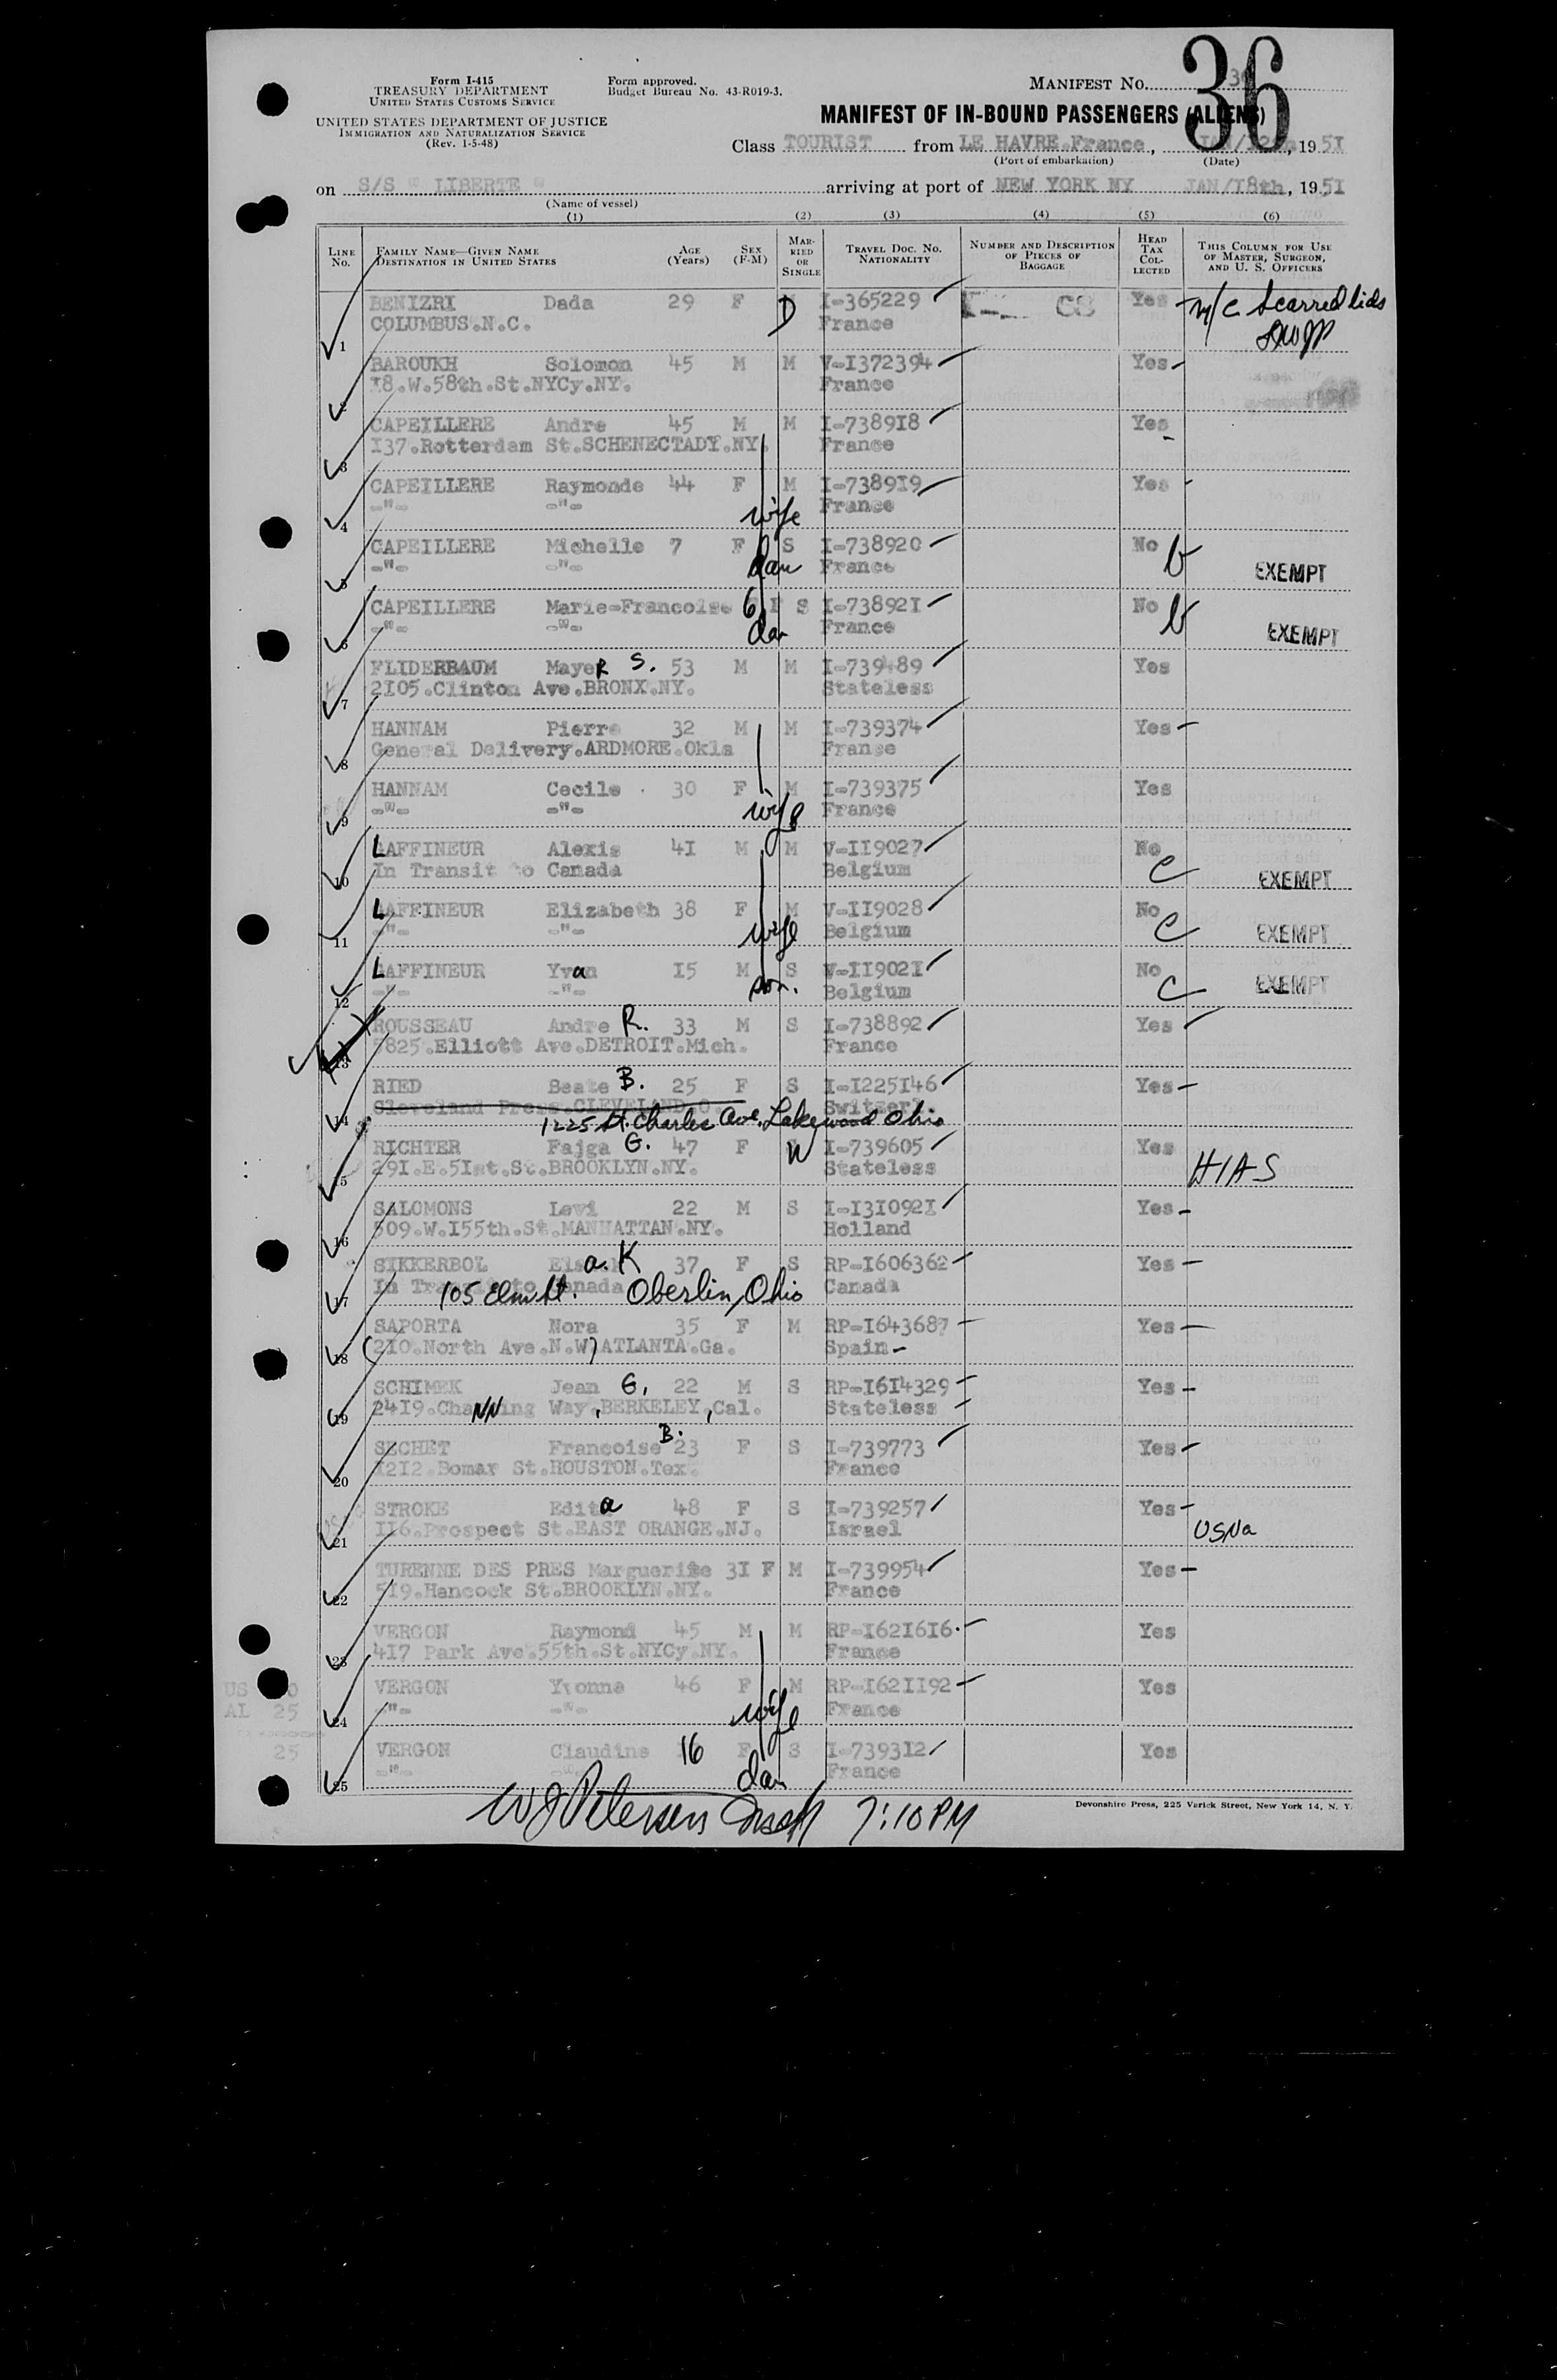 36
Form I-415
TREASURY DEPARTMENT
UNITED STATES CUSTOMS SERVICE
UNITED STATES DEPARTMENT OF JUSTICE
IMMIGRATION AND NATURALIZATION SERVICE
(Rev. 1-5-48)
Form approved.
Budget Bureau No. 43-R019-3.
MANIFEST No.
MANIFEST OF IN-BOUND PASSENGERS (ALIENS)
Class TOURIST from LE HAVRE.France, , 1951
(Port of embarkation) (Date)
on S/S " LIBERTE " arriving at port of NEW YORK NY JAN/18th, 1951
(Name of vessel)
(1) (2) (3) (4) (5) (6)
LINE No. FAMILY NAME—GIVEN NAME DESTINATION IN UNITED STATES AGE (Years) SEX (F-M) MARRIED OR SINGLE TRAVEL DOC. No. NATIONALITY NUMBER AND DESCRIPTION OF PIECES OF BAGGAGE HEAD TAX COLLECTED THIS COLUMN FOR USE OF MASTER, SURGEON, AND U. S. OFFICERS
BENIZRI Dada 29 F D I-365229 Yes m/c Scarred lids
1 COLUMBUS.N.C. France
BAROUKH Solomon 45 M M V-I372394 Yes
2 18.W.58th.St.NYCy.NY. France
CAPEILLERE Andre 45 M M I-738918 Yes
3 I37.Rotterdam St.SCHENECTADY.NY. France
CAPEILLERE Raymonde 44 F M I-738919 Yes
4 -"- -"- wife France
CAPEILLERE Michelle 7 F S I-738920 No b
5 -"- -"- dau France EXEMPT
CAPEILLERE Marie-Francoise 6 F S I-738921 No b
6 -"- -"- dau France EXEMPT
FLIDERBAUM MayeR S. 53 M M I-739489 Yes
7 2I05.Clinton Ave.BRONX.NY. Stateless
HANNAM Pierre 32 M M I-739374 Yes
8 General Delivery.ARDMORE.Okla France
HANNAM Cecile 30 F M I-739375 Yes
9 -"- -"- wife France
LAFFINEUR Alexis 4I M M V-II9027 No
10 In Transit to Canada Belgium C EXEMPT
LAFFINEUR Elizabeth 38 F M V-II9028 No
11 -"- -"- wife Belgium C EXEMPT
LAFFINEUR Yvan I5 M S V-II902I No
12 -"- -"- son. Belgium C EXEMPT
ROUSSEAU Andre R. 33 M S I-738892 Yes
13 5825.Elliott Ave.DETROIT.Mich. France
RIED Beate B. 25 F S I-I225I46 Yes
14 Cleveland Press.CLEVELAND.O. Switzerl.
1225 St. Charles Ave. Lakewood Ohio
RICHTER Fajga G. 47 F W I-739605 Yes
15 29I.E.5Ist.St.BROOKLYN.NY. Stateless HIAS
SALOMONS Levi 22 M S I-I3I092I Yes
16 509.W.I55th.St.MANHATTAN.NY. Holland
SIKKERBOL a. K 37 F S RP-I606362 Yes
17 In Transit to Canada 105 Elm St. Oberlin, Ohio Canada
SAPORTA Nora 35 F M RP-I643687 Yes
18 (2I0.North Ave.N.W) ATLANTA.Ga. Spain
SCHIMEK Jean G. 22 M S RP-I6I4329 Yes
19 24I9.ChaNNing Way, BERKELEY, Cal. Stateless
SECHET Francoise B. 23 F S I-739773 Yes
20 I2I2.Bomar St.HOUSTON.Tex. France
STROKE Edita 48 F S I-739257 Yes
21 II6.Prospect St.EAST ORANGE.NJ. Israel USNa
TURENNE DES PRES Marguerite 3I F M I-739954 Yes
22 5I9.Hancock St.BROOKLYN.NY. France
VERGON Raymond 45 M M RP-I62I6I6. Yes
23 4I7 Park Ave.55th.St.NYCy.NY. France
VERGON Yvonne 46 F M RP-I62II92 Yes
24 -"- -"- wife France
VERGON Claudine 16 F S I-7393I2 Yes
25 -"- -"- dau France
AL 25
25
W J Petersen Insp 7:10 PM
Devonshire Press, 225 Varick Street, New York 14, N. Y.